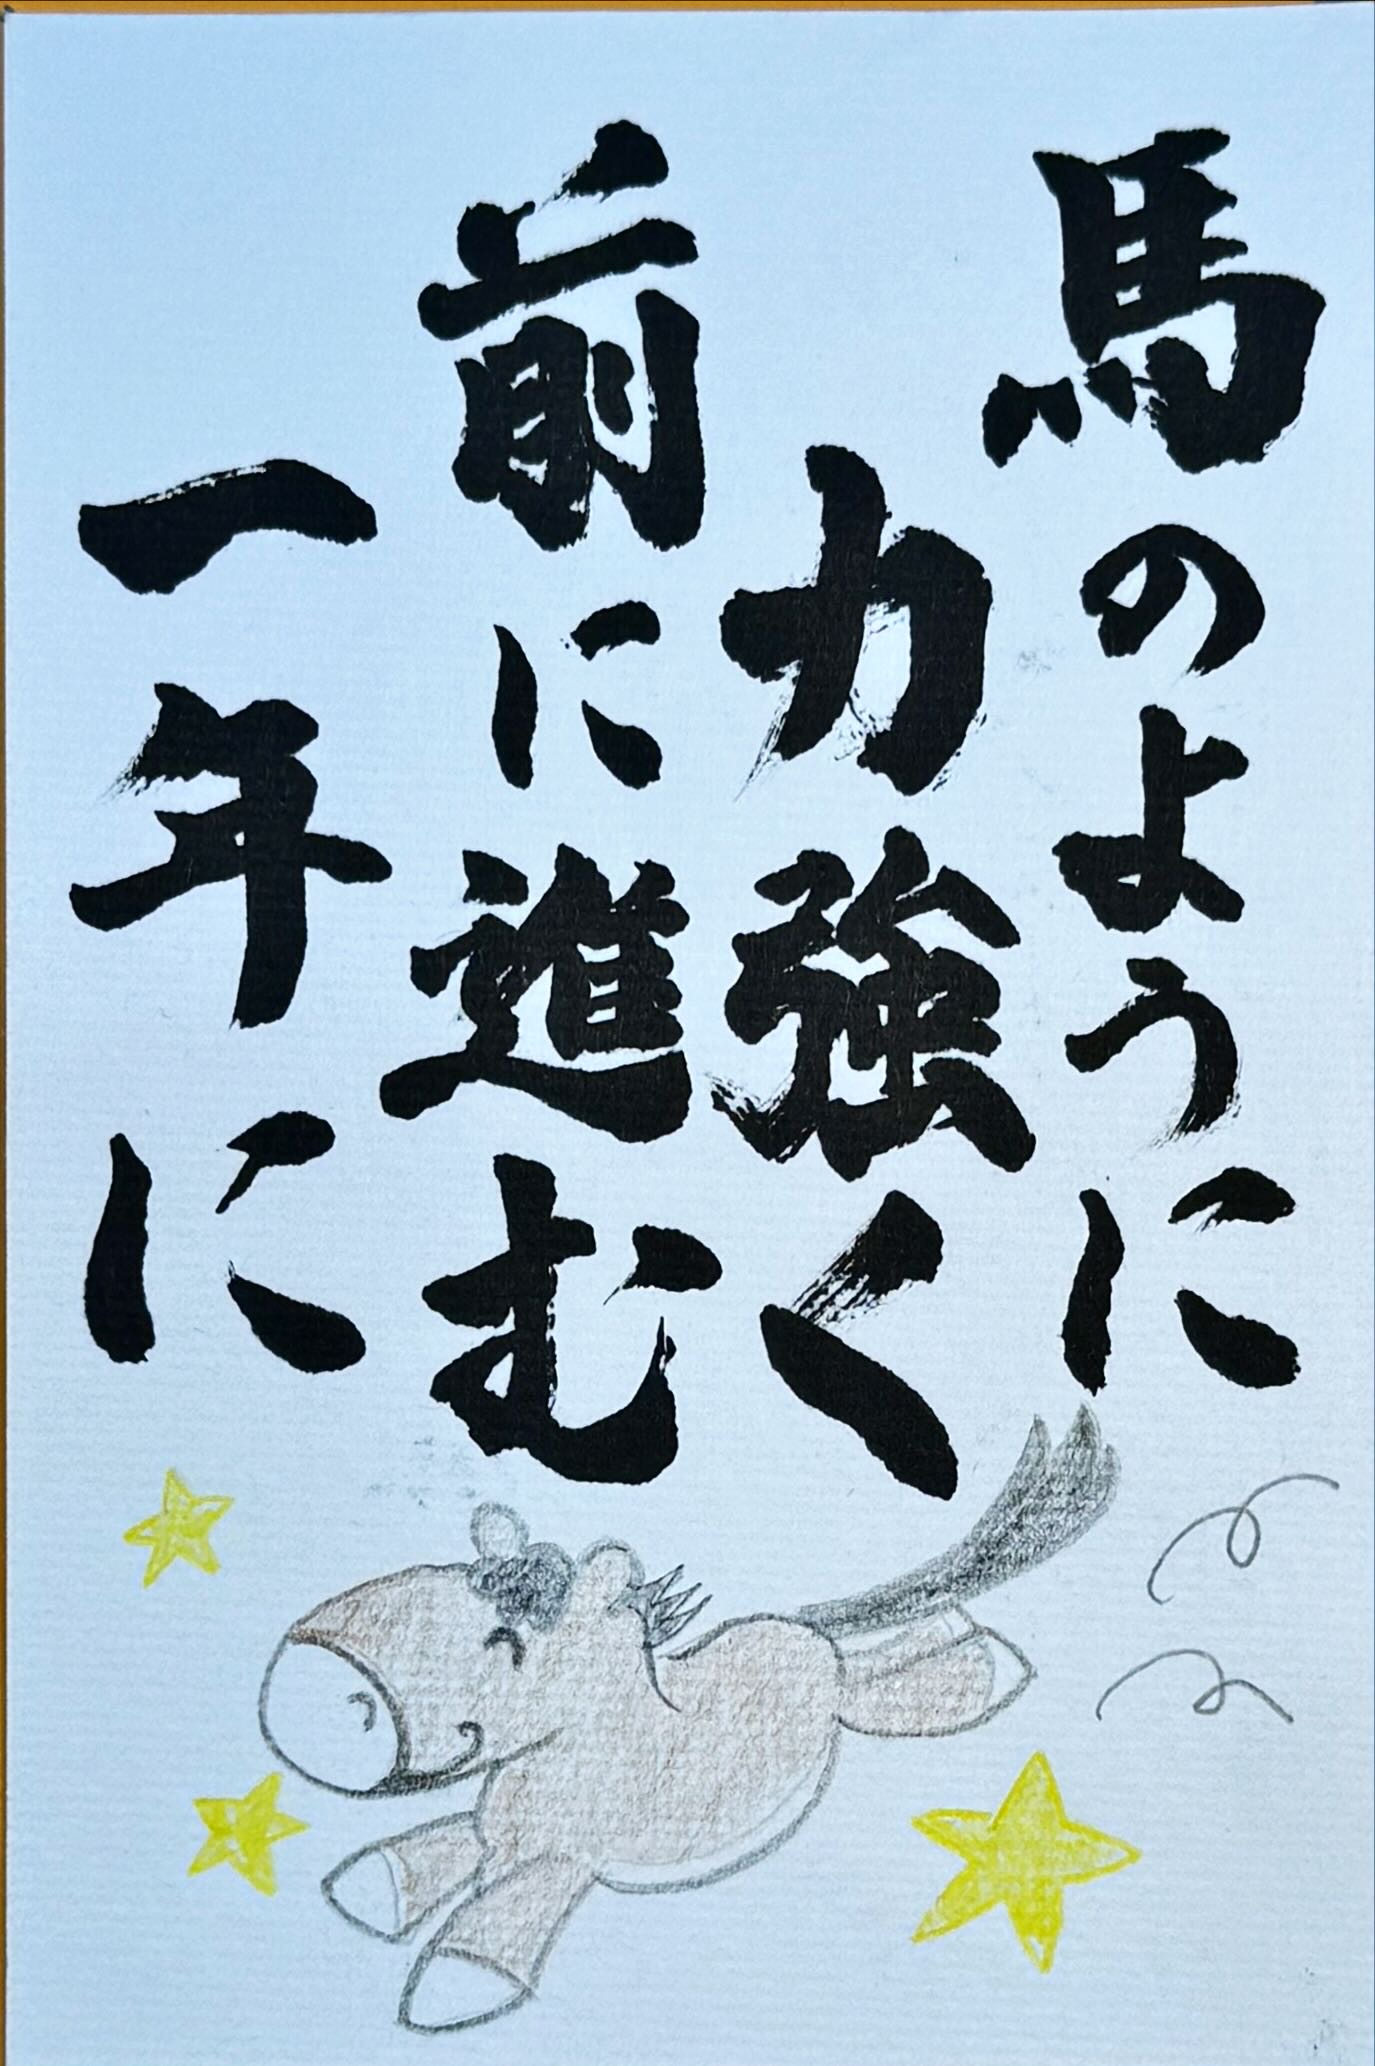 馬のように
力強く
前に進む
一年に